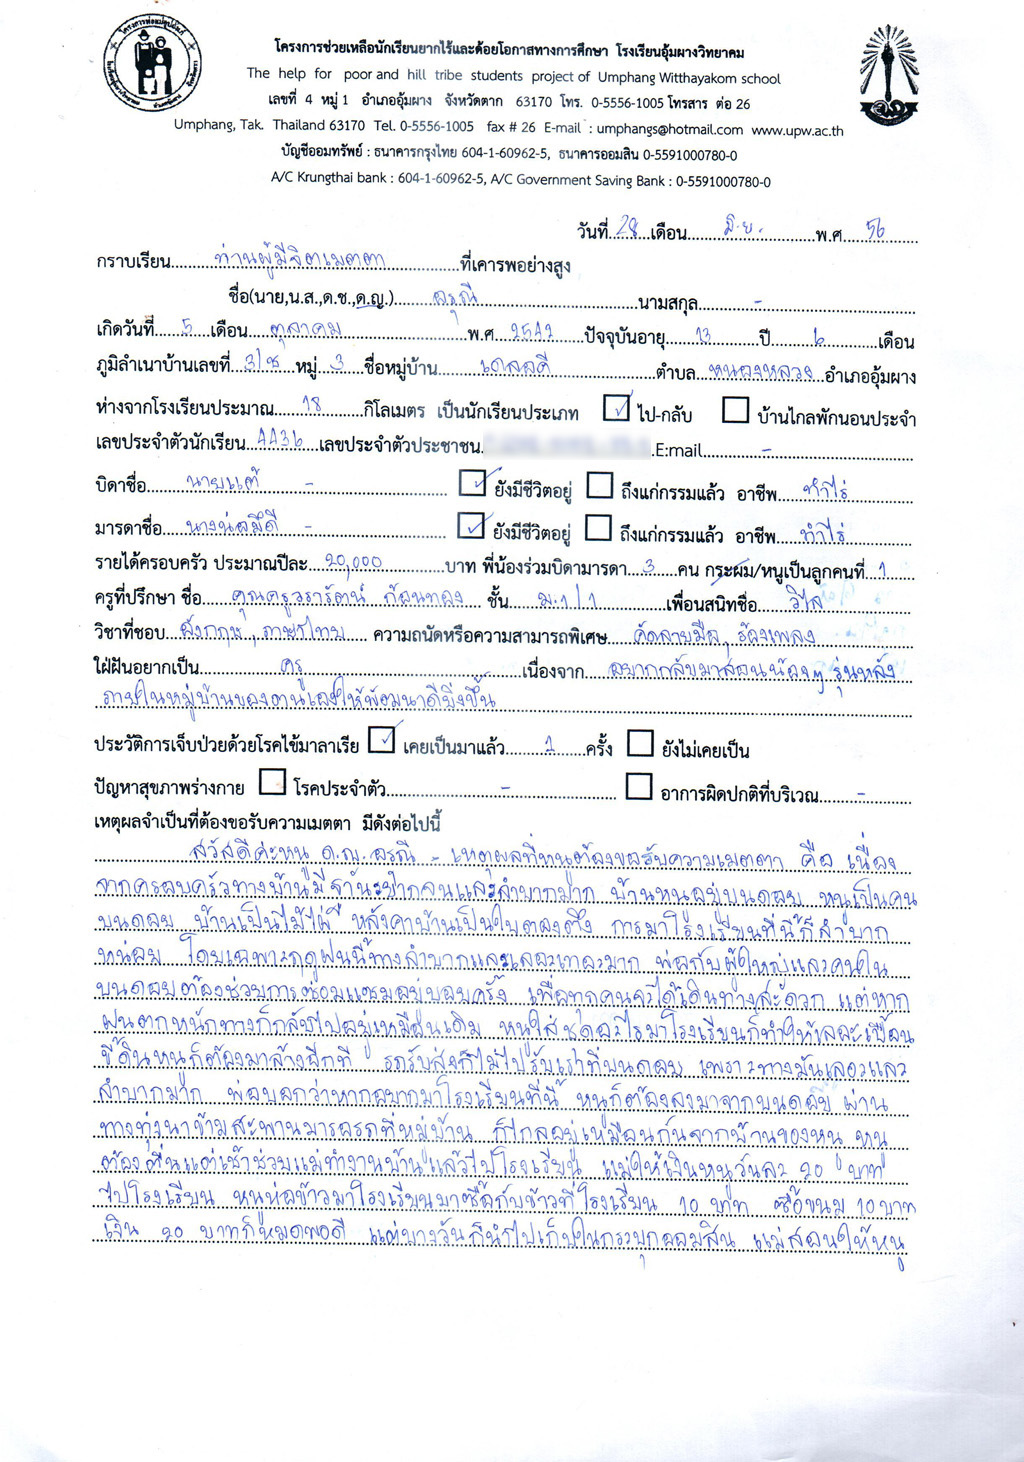 โครงการช่วยเหลือนักเรียนยากไร้และด้อยโอกาสทางการศึกษา โรงเรียนอุ้มผางวิทยาคม
The help for poor and hill tribe students project of Umphang Witthayakom school
เลขที่ 4 หมู่ 1 อำเภออุ้มผาง จังหวัดตาก 63170 โทร. 0-5556-1005 โทรสาร ต่อ 26
Umphang, Tak. Thailand 63170 Tel. 0-5556-1005 fax # 26 E-mail : umphangs@hotmail.com www.upw.ac.th
บัญชีออมทรัพย์ : ธนาคารกรุงไทย 604-1-60962-5, ธนาคารออมสิน 0-5591000780-0
A/C Krungthai bank : 604-1-60962-5, A/C Government Saving Bank : 0-5591000780-0
วันที่ 28 เดือน มิ.ย. พ.ศ. 56
กราบเรียน ท่านผู้มีจิตเมตตา ที่เคารพอย่างสูง
ชื่อ(นาย,น.ส.,ด.ช.,ด.ญ.) อรุณี นามสกุล -
เกิดวันที่ 5 เดือน ตุลาคม พ.ศ 2542 ปัจจุบันอายุ 13 ปี 6 เดือน
ภูมิลำเนาบ้านเลขที่ 3/ช หมู่ 3 ชื่อหมู่บ้าน เดลอคี ตำบล หนองหลวง อำเภออุ้มผาง
ห่างจากโรงเรียนประมาณ 18 กิโลเมตร เป็นนักเรียนประเภท ไป-กลับ บ้านไกลพักนอนประจำ
เลขประจำตัวนักเรียน 4436 เลขประจำตัวประชาชน E:mail -
บิดาชื่อ นายแต้ - ยังมีชีวิตอยู่ ถึงแก่กรรมแล้ว อาชีพ ทำไร่
มารดาชื่อ นางน่อมีดี - ยังมีชีวิตอยู่ ถึงแก่กรรมแล้ว อาชีพ ทำไร่
รายได้ครอบครัว ประมาณปีละ 20,000 บาท พี่น้องร่วมบิดามารดา 3 คน กระผม/หนูเป็นลูกคนที่ 1
ครูที่ปรึกษา ชื่อ คุณครูวรารัตน์ ก้อนทอง ชั้น ม.1/1 เพื่อนสนิทชื่อ วิไล
วิชาที่ชอบ อังกฤษ, ภาษาไทย ความถนัดหรือความสามารถพิเศษ คัดลายมือ, ร้องเพลง
ใฝ่ฝันอยากเป็น ครู เนื่องจาก อยากกลับมาสอนน้องๆ รุ่นหลัง
ภายในหมู่บ้านของตนเองให้พัฒนาดียิ่งขึ้น
ประวัติการเจ็บป่วยด้วยโรคไข้มาลาเรีย เคยเป็นมาแล้ว 1 ครั้ง ยังไม่เคยเป็น
ปัญหาสุขภาพร่างกาย โรคประจำตัว - อาการผิดปกติที่บริเวณ -
เหตุผลจำเป็นที่ต้องขอรับความเมตตา มีดังต่อไปนี้
สวัสดีค่ะหนู ด.ญ. อรุณี - เหตุผลที่หนูต้องขอรับความเมตตา คือ เนื่อง
จากครอบครัวทางบ้านมีฐานะยากจนและลำบากมาก บ้านหนูอยู่บนดอย หนูเป็นคน
บนดอย บ้านเป็นไม้ไผ่ หลังคาบ้านเป็นใบตองตึง การมาโรงเรียนที่นี้ก็ลำบาก
หน่อย โดยเฉพาะฤดูฝนนี้ทางลำบากและเลอะเทอะมาก พ่อกับผู้ใหญ่และคนใน
บนดอยต้องช่วยการซ่อมแซมอยู่บ่อยครั้ง เพื่อทุกคนจะได้เดินทางสะดวก แต่หาก
ฝนตกหนักทางก็กลับไปอยู่เหมือนเดิม หนูใส่ชุดอะไรมาโรงเรียนก็ทำให้เลอะเปื้อน
ขี้ดินหนูก็ต้องมาล้างอีกที รถรับส่งก็ไม่ไปรับเราที่บนดอย เพราะทางมันเลอะและ
ลำบากมาก พ่อบอกว่าหากอยากมาโรงเรียนที่นี้ หนูก็ต้องลงมาจากบนดอย ผ่าน
ทางทุ่งนาข้ามสะพานมารอรถที่หมู่บ้าน ก็ไกลอยู่เหมือนกันจากบ้านของหนู หนู
ต้องตื่นแต่เช้าช่วยแม่ทำงานบ้านแล้วไปโรงเรียน แม่ให้เงินหนูวันละ 20 บาท
ไปโรงเรียน หนูห่อข้าวมาโรงเรียนมาซื้อกับข้าวที่โรงเรียน 10 บาท ซื้อขนม 10 บาท
เงิน 20 บาทก็หมดพอดี แต่บางวันก็นำไปเก็บในกระปุกออมสิน แม่สอนให้หนู